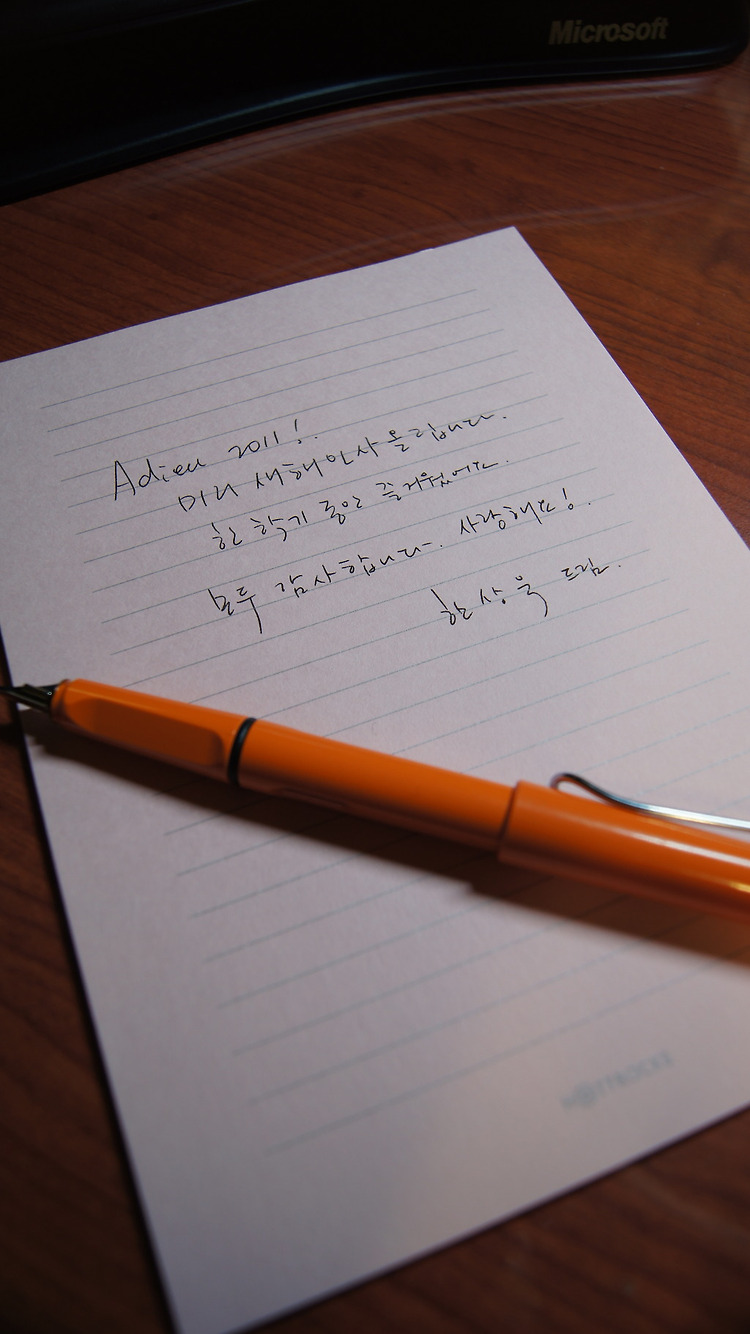 Microsoft
Adieu 2011!
미리 새해인사 올립니다.
한 학기 동안 즐거웠어요.
모두 감사합니다. 사랑해요!
한상욱 드림.